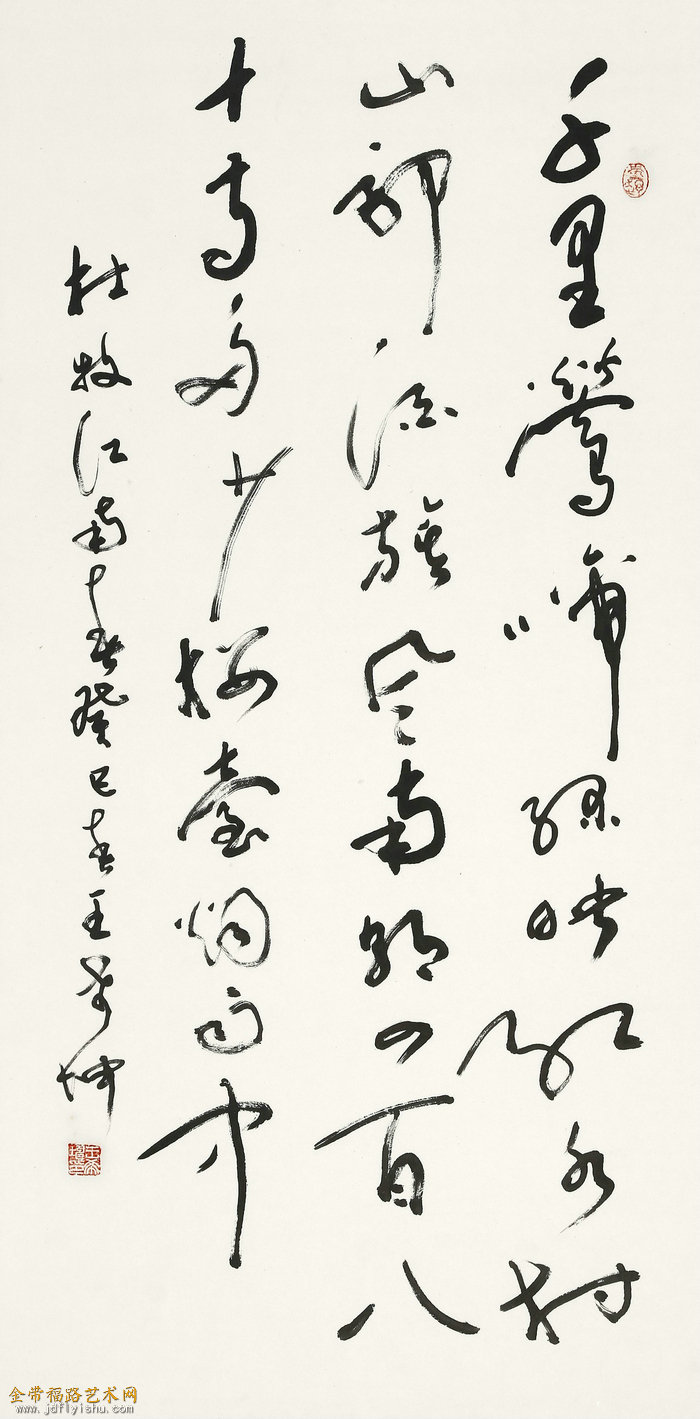 千里鶯啼綠映紅水村
山郭酒旗風南朝四百八
十寺多少樓臺烟雨中
杜牧江南春癸巳春王坤
金带福路艺术网
www.jdflyishu.com